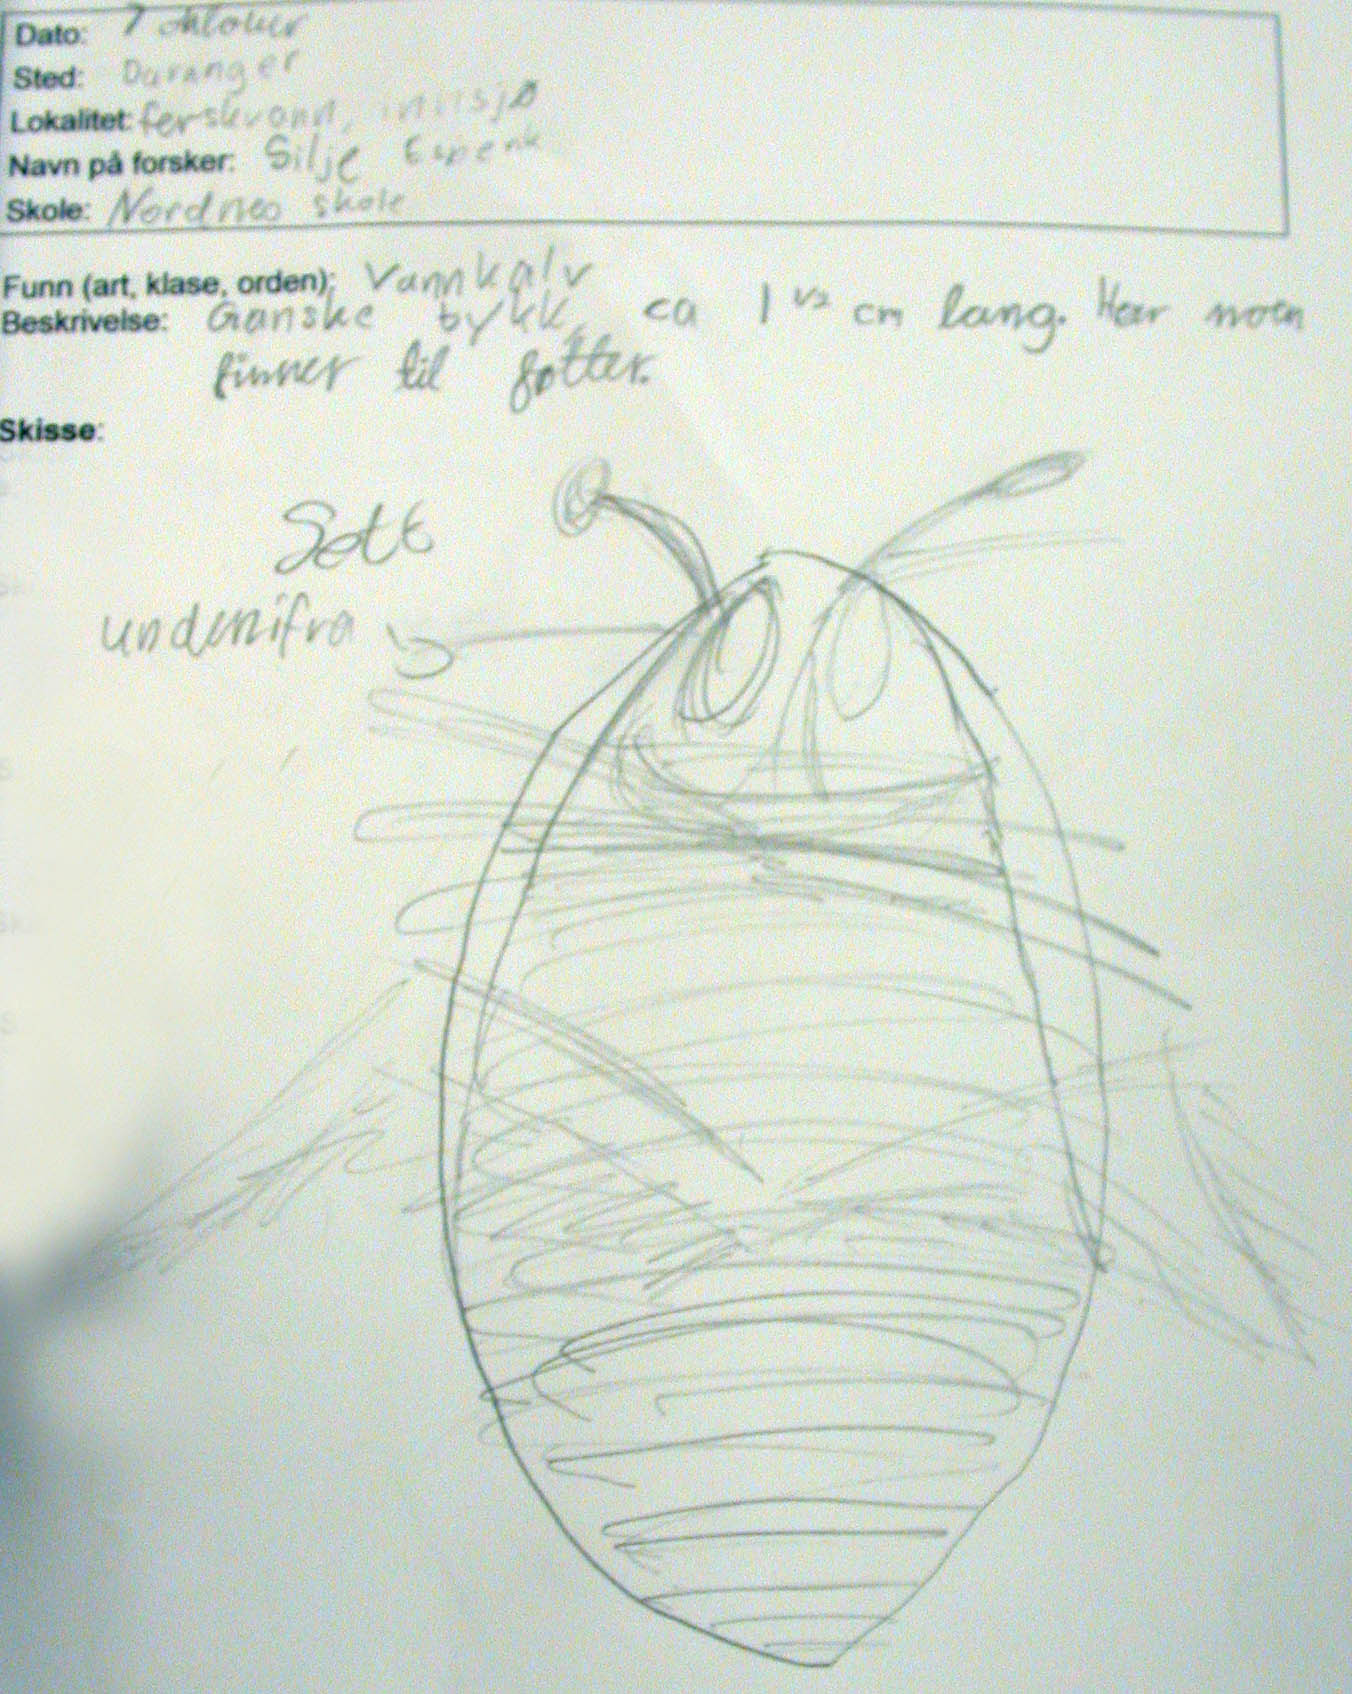 Dato: 7 oktober
Sted: Duranger
Lokalitet: ferskvann, innsjø
Navn på forsker: Silje Espenk
Skole: Nordnes skole
Funn (art, klase, orden): Vannkalv
Beskrivelse: Ganske bykk, ca 1 1/2 cm lang. Har noen
finner til føtter.
Skisse:
Sett
undenifra